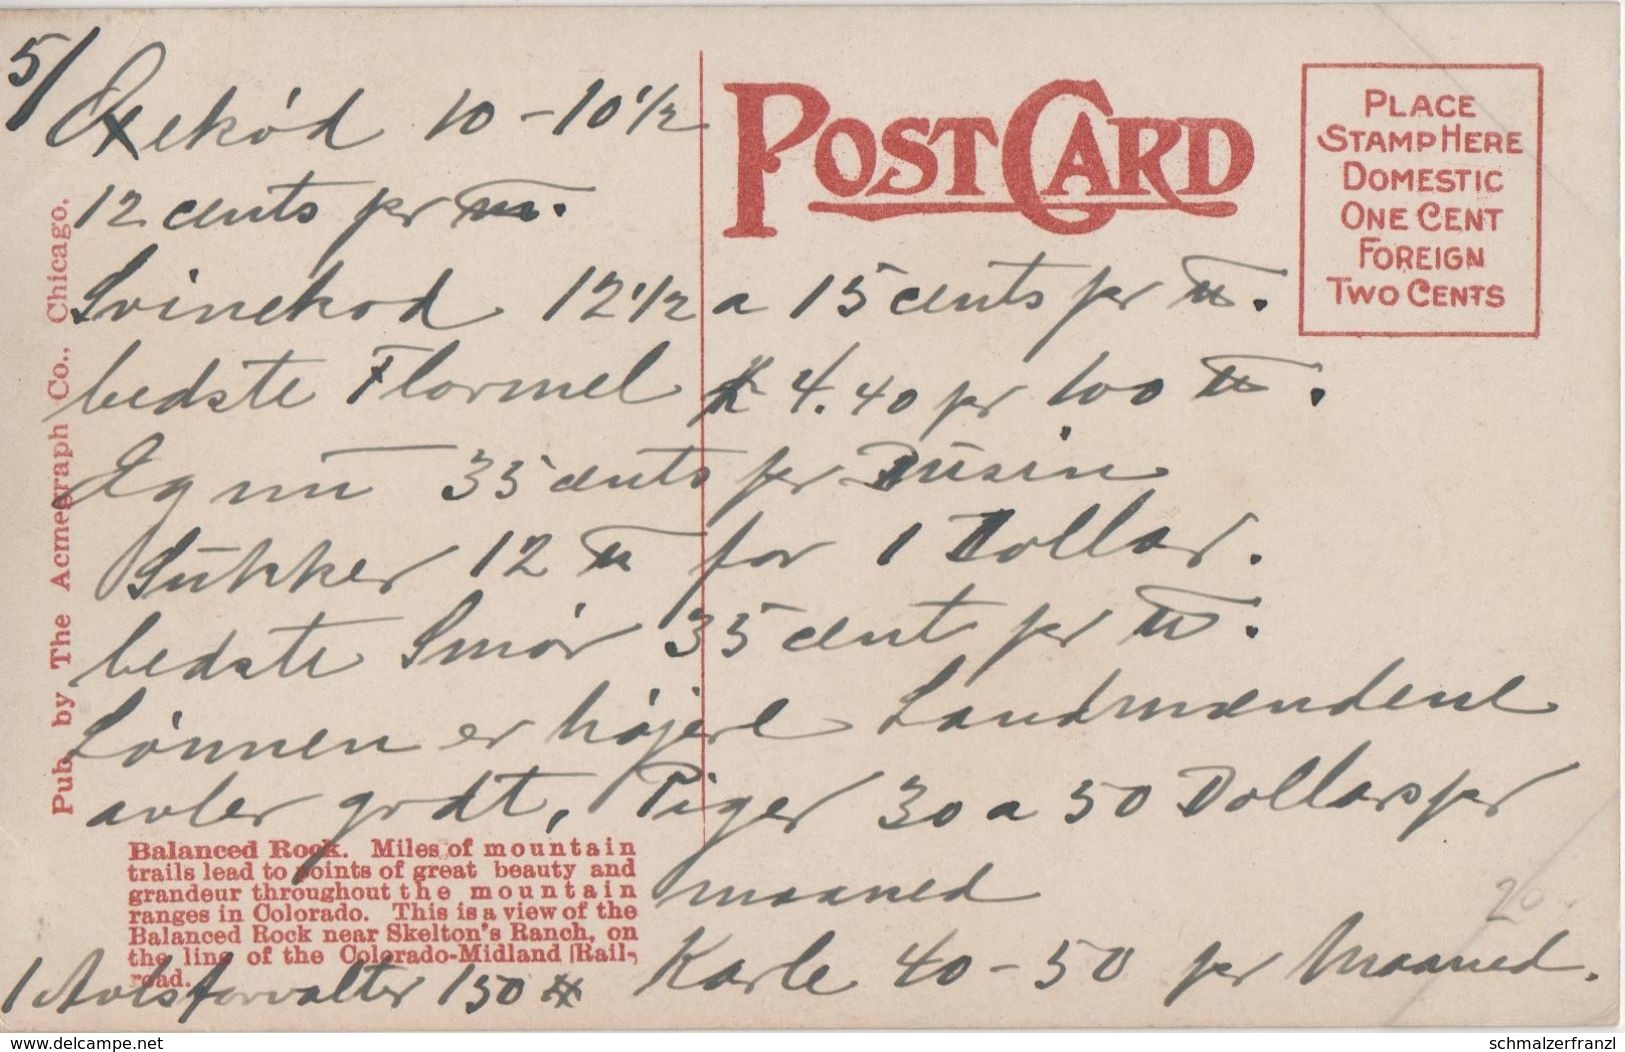 5/
Oxekód 10 - 10 1/2
12 cents pr ℔.
Svinekod 12 1/2 a 15 cents pr ℔.
bedste Flormel $ 4.40 pr 100 ℔.
Æg nu 35 cents pr Dusin
Sukker 12 ℔ for 1 Dollar.
bedste Smór 35 cent pr ℔.
Lónnen er hójere Landmændene
avler godt, Piger 30 a 50 Dollars pr
maaned
Karle 40 - 50 pr Maaned.
1 Avlsforvalter 150 $
POST CARD
PLACE
STAMP HERE
DOMESTIC
ONE CENT
FOREIGN
TWO CENTS
Pub. by The Acmegraph Co., Chicago.
Balanced Rock. Miles of mountain
trails lead to points of great beauty and
grandeur throughout the mountain
ranges in Colorado. This is a view of the
Balanced Rock near Skelton's Ranch, on
the line of the Colorado-Midland Rail-
road.
www.delcampe.net
schmalzerfranzl